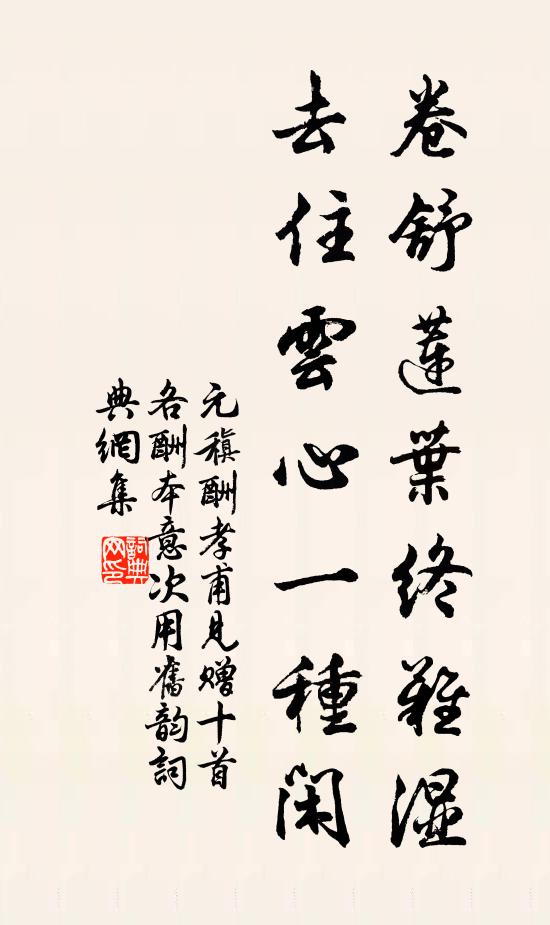 卷舒蓮葉終難湿
去住雲心一種閑
元稹酬孝甫見赠十首
各酬本意次用舊韵詞
典網集
詞典
网印